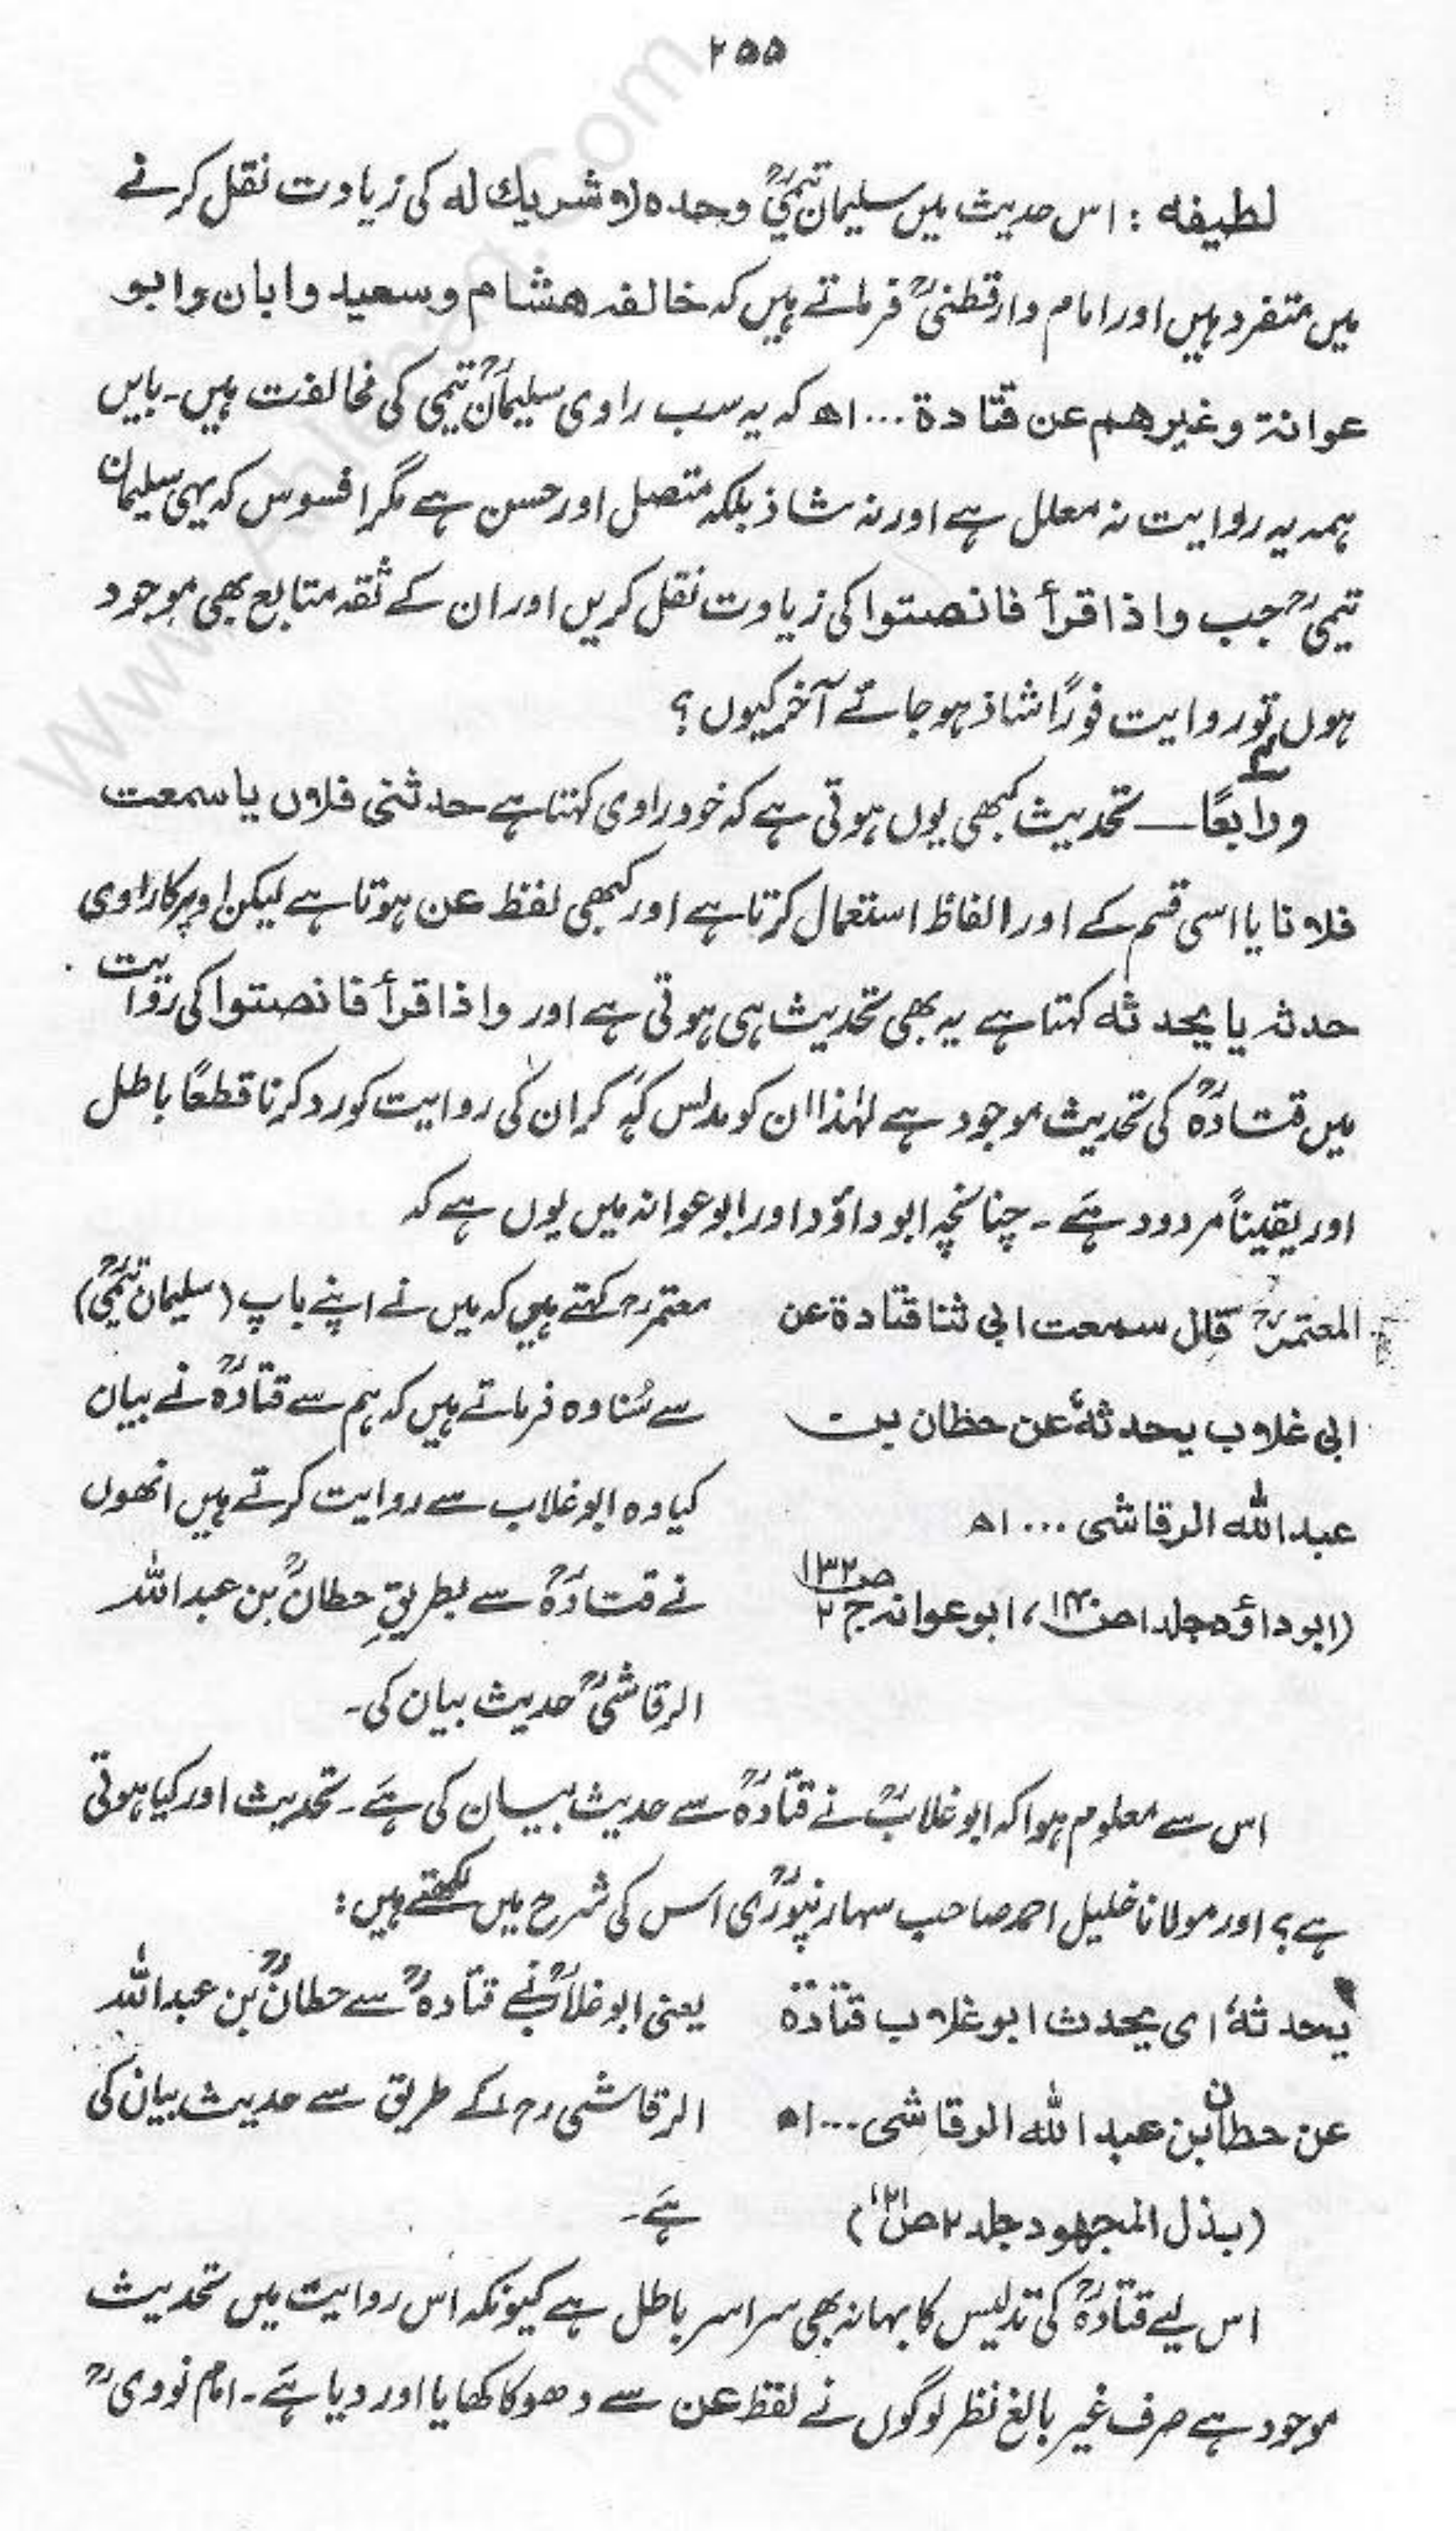 ۲۵۵
لطیفہ : اس حدیث میں سلیمان تیمیؒ وحدہ لا شریك له کی زیادت نقل کرنے
میں متفرد ہیں اور امام دارقطنیؒ فرماتے ہیں کہ خالفہ هشام و سعید و ابان و ابو
عوانة و غیرهم عن قتادة ... اھ کہ یہ سب راوی سلیمانؒ تیمی کی مخالفت ہیں۔ بایں
ہمہ یہ روایت نہ معلل ہے اور نہ شاذ بلکہ متصل اور حسن ہے مگر افسوس کہ یہی سلیمان
تیمیؒ جب واذا قرأ فانصتوا کی زیادت نقل کریں اور ان کے ثقہ متابع بھی موجود
ہوں تو روایت فورًا شاذ ہو جائے آخر کیوں ؟
ورابعًا — تحدیث کبھی یوں ہوتی ہے کہ خود راوی کہتا ہے حدثنی فلاں یا سمعت
فلانا یا اسی قسم کے اور الفاظ استعمال کرتا ہے اور کبھی لفظ عن ہوتا ہے لیکن اوپر کا راوی
حدثہ یا یحدثه کہتا ہے یہ بھی تحدیث ہی ہوتی ہے اور واذا قرأ فانصتوا کی روایت
میں قتادہؒ کی تحدیث موجود ہے لہٰذا ان کو مدلس کہہ کر ان کی روایت کو رد کرنا قطعًا باطل
اور یقیناً مردود ہے۔ چنانچہ ابو داؤد اور ابو عوانہ میں یوں ہے کہ
المعتمرؒ قال سمعت ابی ثنا قتادة عن
ابی غلاب یحدثهٗ عن حطان بن
عبد الله الرقاشی ... اھ
(ابو داؤد جلد ا ص۱۴۰، ابو عوانہ ج ۲ ص۱۳۲
معتمرؒ کہتے ہیں کہ میں نے اپنے باپ (سلیمان تیمیؒ)
سے سُنا وہ فرماتے ہیں کہ ہم سے قتادہؒ نے بیان
کیا وہ ابو غلاب سے روایت کرتے ہیں انھوں
نے قتادہؒ سے بطریقِ حطانؒ بن عبد اللہ
الرقاشیؒ حدیث بیان کی۔
اس سے معلوم ہوا کہ ابو غلابؒ نے قتادہؒ سے حدیث بیان کی ہے۔ تحدیث اور کیا ہوتی
ہے؟ اور مولانا خلیل احمد صاحب سہارنپوریؒ اس کی شرح میں لکھتے ہیں :
یحدثهٗ ای یحدث ابو غلاب قتادة
عن حطان بن عبد الله الرقاشی ... اھ
(بذل المجهود جلد ۲ ص۱۲۱)
یعنی ابو غلابؒ نے قتادہؒ سے حطانؒ بن عبد اللہ
الرقاشی رح کے طریق سے حدیث بیان کی
ہے۔
اس لیے قتادہؒ کی تدلیس کا بہانہ بھی سراسر باطل ہے کیونکہ اس روایت میں تحدیث
موجود ہے صرف غیر بالغ نظر لوگوں نے لفظ عن سے دھوکا کھایا اور دیا ہے۔ امام نووی ؒ
www.Ahlehaq.com